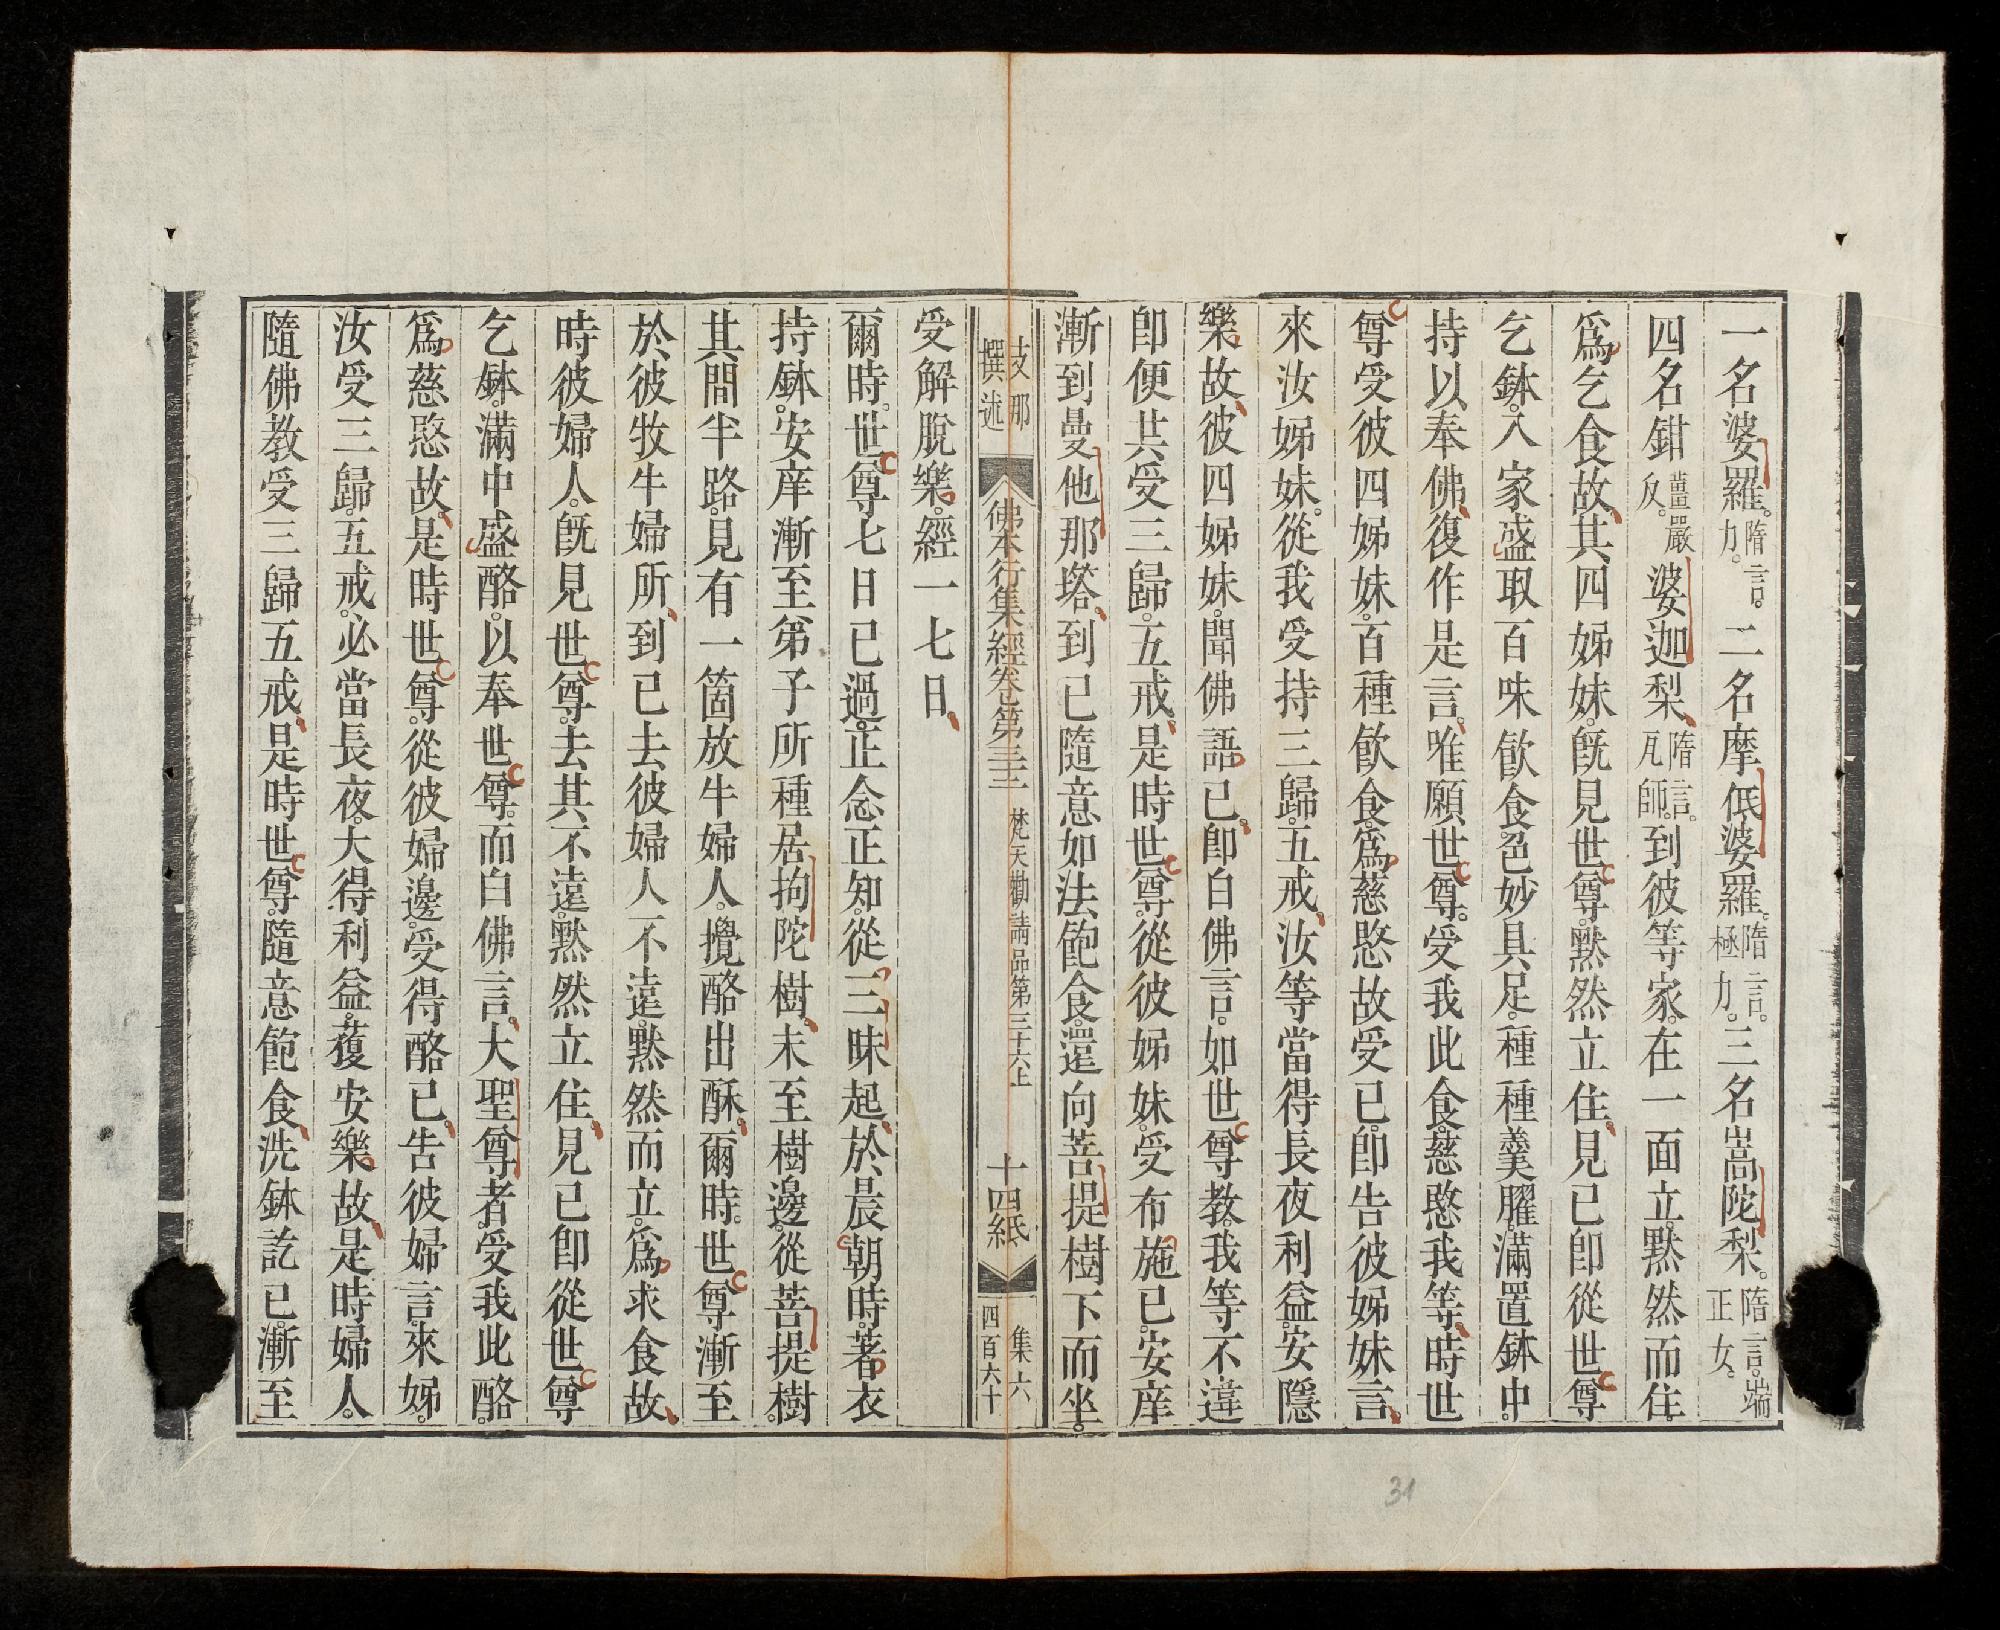 一名婆羅。隋言。力。二名摩低婆羅。隋言。極力。三名嵩陀梨。隋言。端正女。
四名鉗薑嚴反。婆迦梨、隋言。瓦師。到彼等家。在一面立。默然而住。
爲乞食故、其四姊妹。旣見世尊。默然立住、見已卽從世尊
乞鉢。入家盛取百味飮食。色妙具足。種種羹臛。滿置鉢中。
持以奉佛、復作是言、唯願世尊。受我此食。慈愍我等、時世
尊受彼四姊妹。百種飮食。爲慈愍故受已。卽告彼姊妹言、
來汝姊妹。從我受持三歸。五戒、汝等當得長夜利益。安隱
樂故、彼四姊妹。聞佛語已。卽白佛言。如世尊教。我等不違
卽便共受三歸。五戒、是時世尊。從彼姊妹。受布施已。安庠
漸到曼他那塔、到已隨意如法飽食。還向菩提樹下而坐。
支那撰述 佛本行集經卷第三三 梵天勸請品第三十六上 十四紙 集六 四百六十
受解脫樂。經一七日、
爾時。世尊七日已過。正念正知。從三昧起、於晨朝時。著衣
持鉢。安庠漸至第子所種居拘陀樹、末至樹邊。從菩提樹
其間半路。見有一箇放牛婦人。攪酪出酥、爾時。世尊漸至
於彼牧牛婦所、到已去彼婦人不遠。默然而立。爲求食故、
時彼婦人。旣見世尊。去其不遠。默然立住、見已卽從世尊
乞鉢。滿中盛酪。以奉世尊。而白佛言、大聖尊者。受我此酪。
爲慈愍故、是時世尊。從彼婦邊。受得酪已、告彼婦言。來姊。
汝受三歸。五戒。必當長夜。大得利益。蕧安樂故、是時婦人。
隨佛教受三歸五戒、是時世尊。隨意飽食、洗鉢訖已。漸至
31